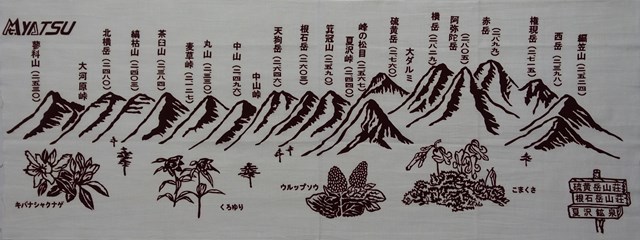 MYATSU
蓼科山(二五三〇)
大河原峠
北横岳(二四八〇)
縞枯山(二四〇三)
茶臼山(二三八四)
麦草峠(二一二七)
丸山(二三三〇)
中山(二四九六)
中山峠
天狗岳(二六四六)
根石岳(二六〇三)
箕冠山(二五九〇)
夏沢峠(二四四〇)
峰の松目(二五六七)
硫黄岳(二七六〇)
大ダルミ
横岳(二八二九)
阿弥陀岳(二八〇五)
赤岳(二八九九)
権現岳(二七一五)
西岳(二三九八)
編笠山(二五二四)
キバナシャクナゲ
くろゆり
ウルップソウ
こまくさ
硫黄岳山荘
根石岳山荘
夏沢鉱泉